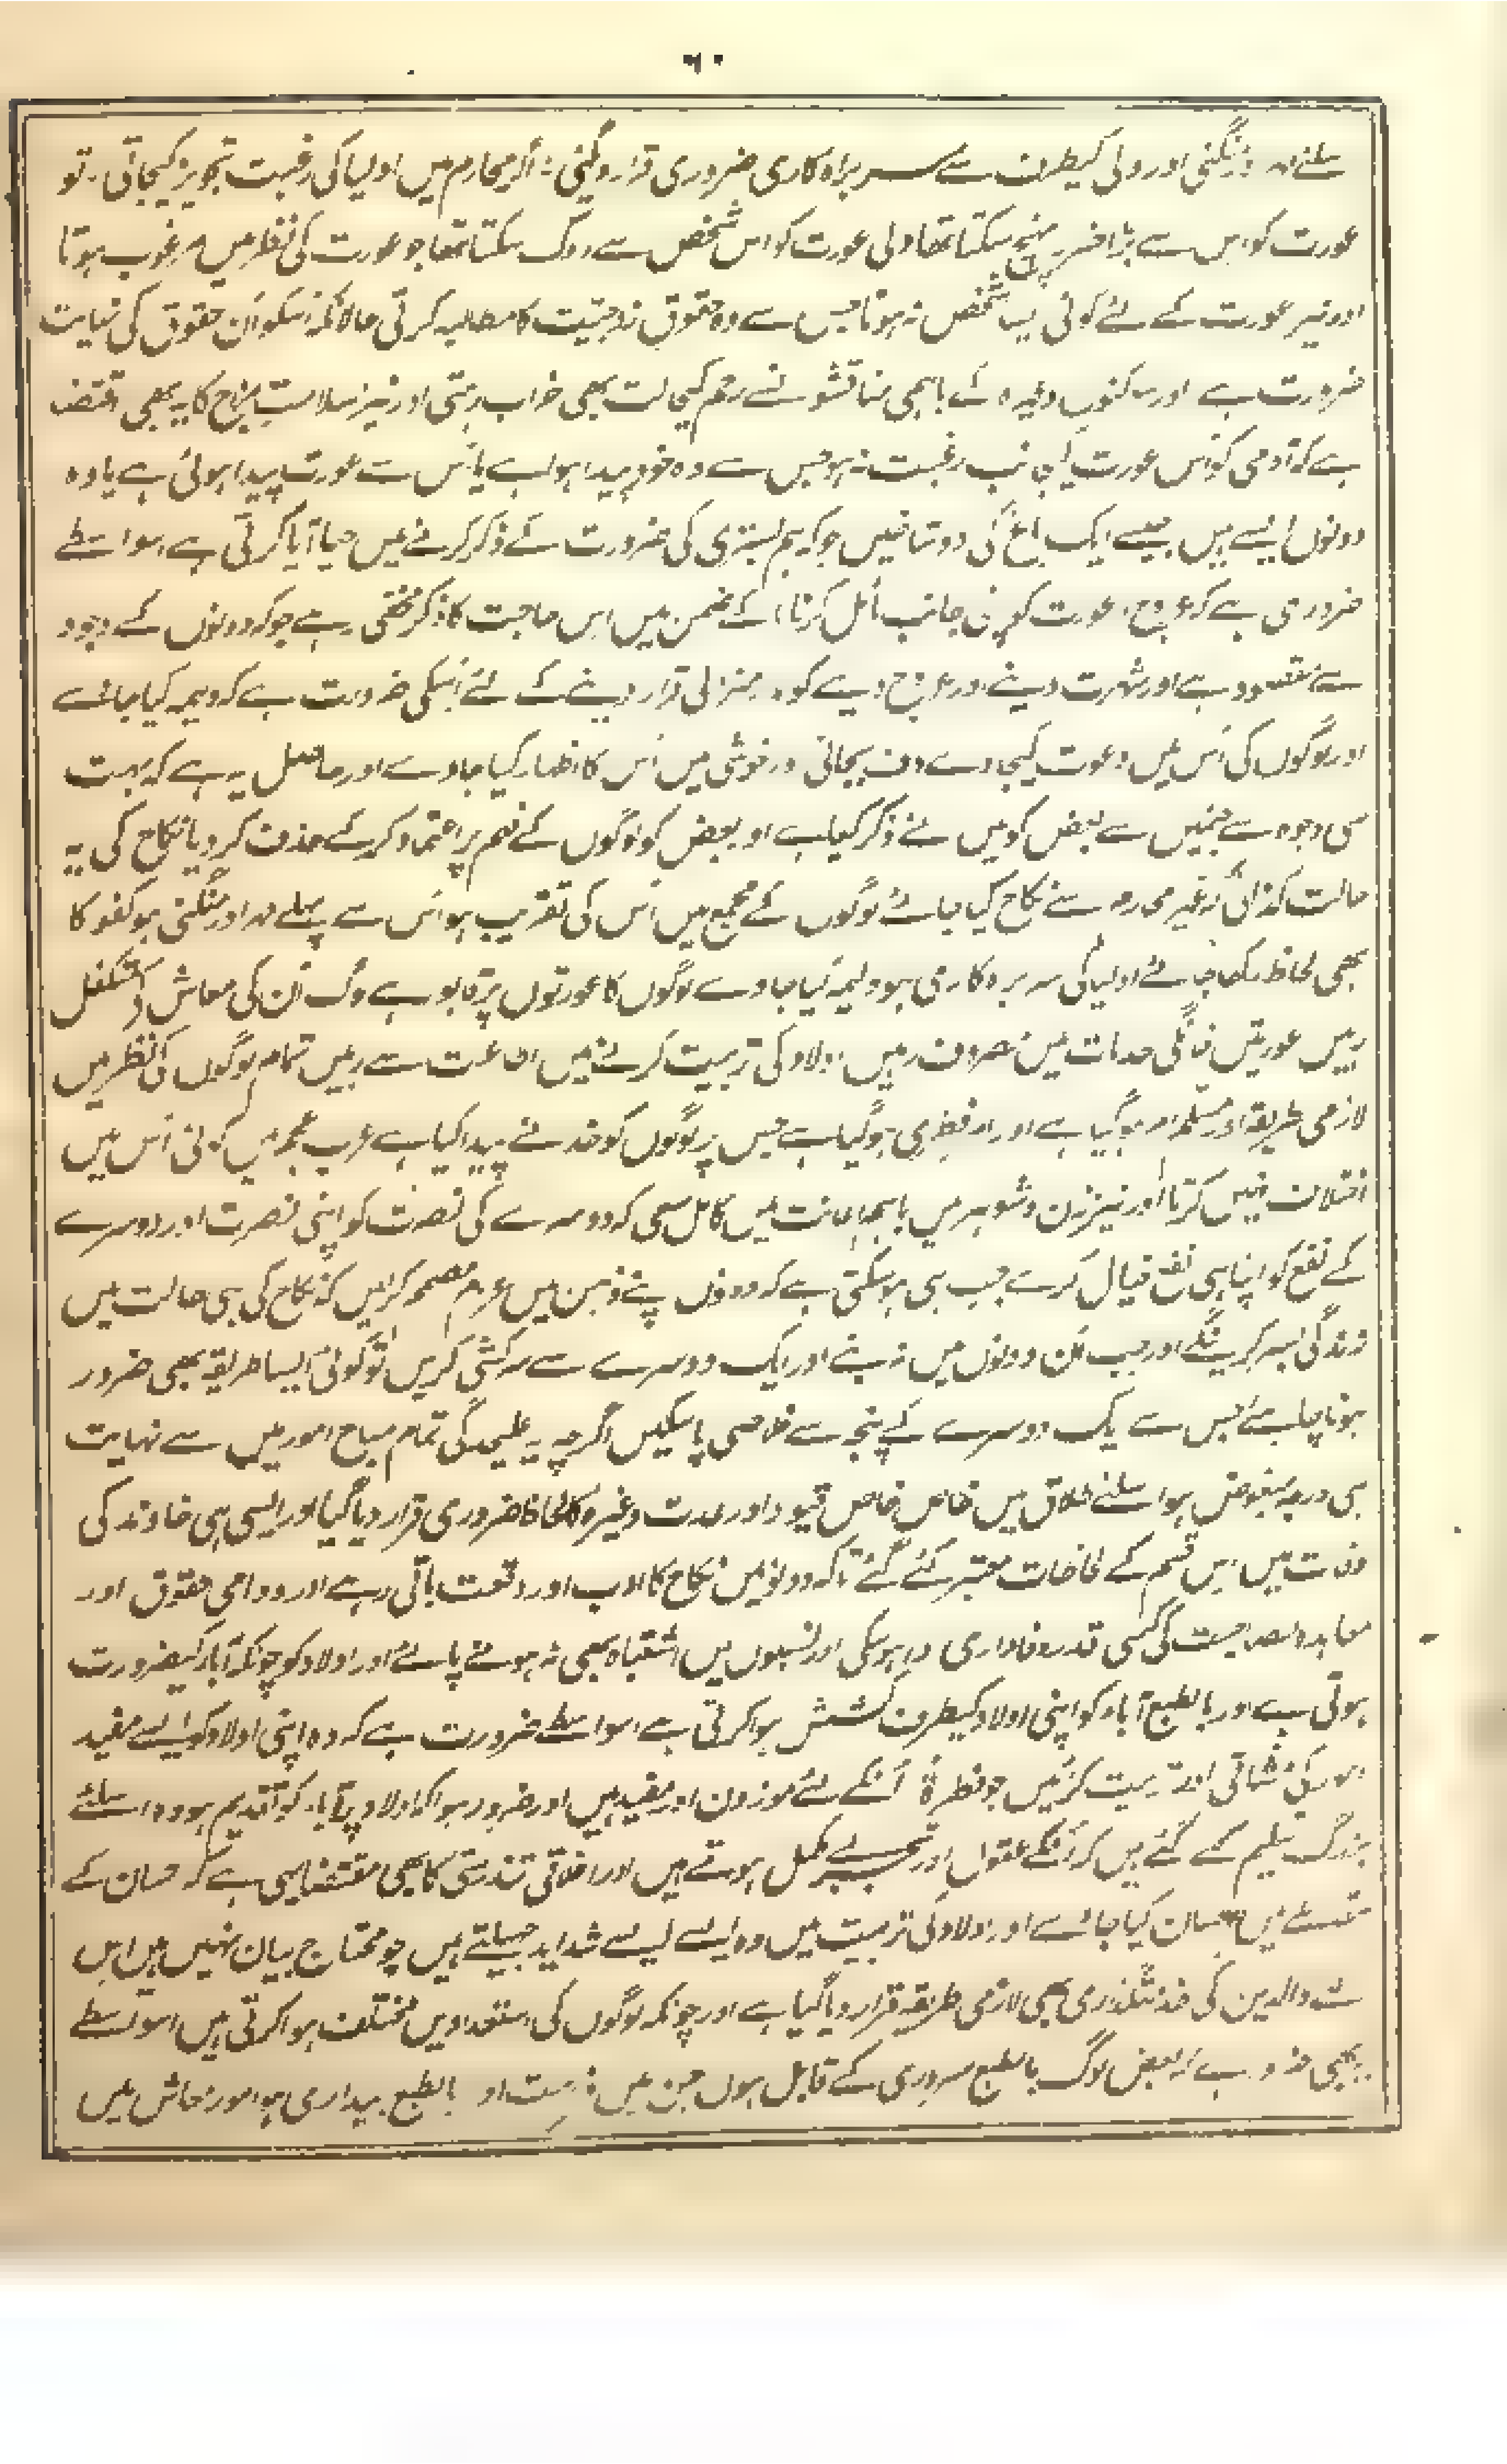 ۶۰
سلئے مہر و منگنی اور ولی کیطرف سے سربراہ کاری ضروری قرار دیگئی: اگر محارم میں اولیا کی رغبت تجویز کیجاتی۔ تو
عورت کو اس سے بڑا ضرر پہنچ سکتا تھا ولی عورت کو اس شخص سے روک سکتا تھا جو عورت کی نظر میں مرغوب ہوتا
اور نیز عورت کے لئے کوئی شخص نہ ہوتا جس سے وہ حقوق زوجیت کا مطالبہ کرتی حالانکہ اسکو اُن حقوق کی نہایت
ضرورت ہے اور سوکنوں وغیرہ کے باہمی مناقشوں نے رحم کیحالت بھی خراب رہتی اور نیز سلامت مزاج کا یہ بھی مقتضا
ہے کہ آدمی کو اُس عورت کیجانب رغبت نہ ہو جس سے وہ خود پیدا ہوا ہے یا اُس سے عورت پیدا ہوئی ہے یا وہ
دونوں ایسے ہیں جیسے ایک باغ کی دو شاخیں جو کہ ہم بستری کی ضرورت کے ذکر کرنے میں حیا آیا کرتی ہے اسواسطے
ضروری ہے کہ عروج عورت کو جانب کے ضمن میں اس حاجت کا ذکر مخفی رہے جو کہ دونوں کے وجود
سے مقصود ہے اور شہرت دینے اور عروج دینے کو منزلی قرار دینے کے لئے اُسکی ضرورت ہے کہ ولیمہ کیا جائے
اور لوگوں کی اُس میں دعوت کیجاوے دف بجائی اور خوشی میں اُس کا اظہار کیا جاوے اور حاصل یہ ہے کہ بہت
سی وجوہ سے جنمیں سے بعض کو میں نے ذکر کیا ہے اور بعض کو لوگوں کے فہم پر اعتماد کر کے حذف کر دیا نکاح کی یہ
حالت کذائی کہ غیر محارم سے نکاح کیا جائے لوگوں کے مجمع میں اُس کی تقریب ہو اُس سے پہلے مہر اور منگنی ہو کفو کا
بھی لحاظ رکھا جائے اولیا کی سربراہ کاری ہو ولیمہ کیا جاوے لوگوں کا عورتوں پر قابو ہے لوگ اُن کی معاش کے متکفل
رہیں عورتیں خانگی خدمات میں مصروف رہیں اولاد کی تربیت کرنے میں اطاعت سے رہیں تمام لوگوں کی نظر میں
لازمی طریقہ اور مسلمہ امر ہو گیا ہے اور امر فطری ہو گیا ہے جس پر لوگوں کو خدا نے پیدا کیا ہے عرب عجم میں کوئی اُس میں
اختلاف نہیں کرتا اور نیز زن و شوہر میں باہم اعانت میں کامل سعی کہ دوسرے کی نصرت کو اپنی نصرت اور دوسرے
کے نفع کو اپنا ہی نفع خیال کرے جب ہی ہو سکتی ہے کہ دونوں اپنے ذہن میں عزم مصمم کر لیں کہ نکاح کی ہی حالت میں
زندگی بسر کرینگے اور جب اُن دونوں میں نہ بنے اور ایک دوسرے سے سرکشی کریں تو کوئی ایسا طریقہ بھی ضرور
ہونا چاہئے جس سے ایک دوسرے کے پنجہ سے خلاصی پا سکیں اگرچہ یہ علیحدگی تمام مباح امور میں سے نہایت
ہی درجہ مبغوض ہو اسلئے طلاق میں خاص خاص قیود اور عدت وغیرہ کا لحاظ ضروری قرار دیا گیا اور ایسی ہی خاوند کی
وفات میں اس قسم کے لحاظات معتبر کئے گئے تاکہ دونوں میں نکاح کا ادب اور وقعت باقی رہے اور دوامی حقوق اور
معاہدہ مصاحبت کی کسی قدر وفاداری ہو سکی اور نسبوں میں اشتباہ بھی نہ ہونے پائے اور اولاد کو چونکہ آبا کیضرورت
ہوتی ہے اور بالطبع آباء کو اپنی اولاد کیطرف کشش ہوا کرتی ہے اسواسطے ضرورت ہے کہ وہ اپنی اولاد کو ایسے مفید
امور کی مشاقی اور تربیت کرائیں جو فطرۃً اُنکے لئے موزون اور مفید ہیں اور ضرور ہوا کہ اولاد پر آباء کو تقدیم ہو وہ اسلئے
بزرگ تسلیم کے گئے ہیں کہ اُنکے عقول اور تجربے مکمل ہوتے ہیں اور اخلاقی تندرستی کا بھی مقتضا یہی ہے کہ احسان کے
مقابلے میں احسان کیا جائے اور اولاد کی تربیت میں وہ ایسے ایسے شداید جھیلتے ہیں جو محتاج بیان نہیں ہیں اس
لئے والدین کی خدمتگذاری بھی لازمی طریقہ قرار دیا گیا ہے اور چونکہ لوگوں کی استعدادیں مختلف ہوا کرتی ہیں اسواسطے
یہ بھی ضرور ہے کہ بعض لوگ بالطبع سروری کے قابل ہوں جن میں فراست اور بالطبع بیداری ہو امور معاش میں